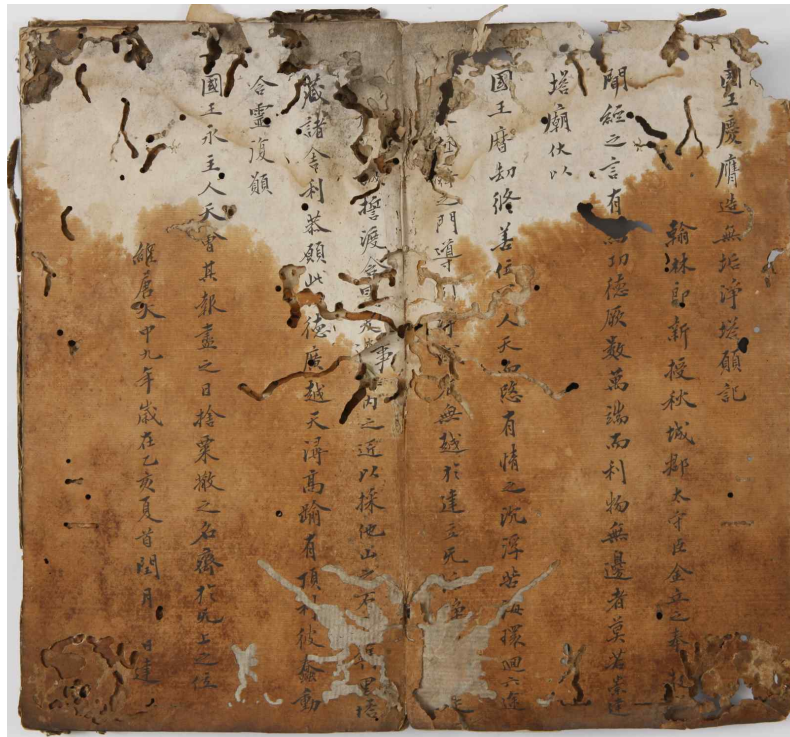 國王慶膺造無垢淨塔願記
翰林郎新授秋城郡太守臣金立之奉
聞經之言有功德厥數萬端而利物無邊者莫若崇建
塔廟伏以
國王曆劫修善位人天而愍有情之沉浮苦海環迴六途
之門導無越於建立无垢淨
誓渡含內之匠以採他山之石塔
藏諸舍利恭願此德廣越天潯高踰有頂利彼蠢動
含靈復願
國王永主人天會其報盡之日捨粟散之名齊於无上之位
維唐大中九年歲在乙亥夏首閏月日建